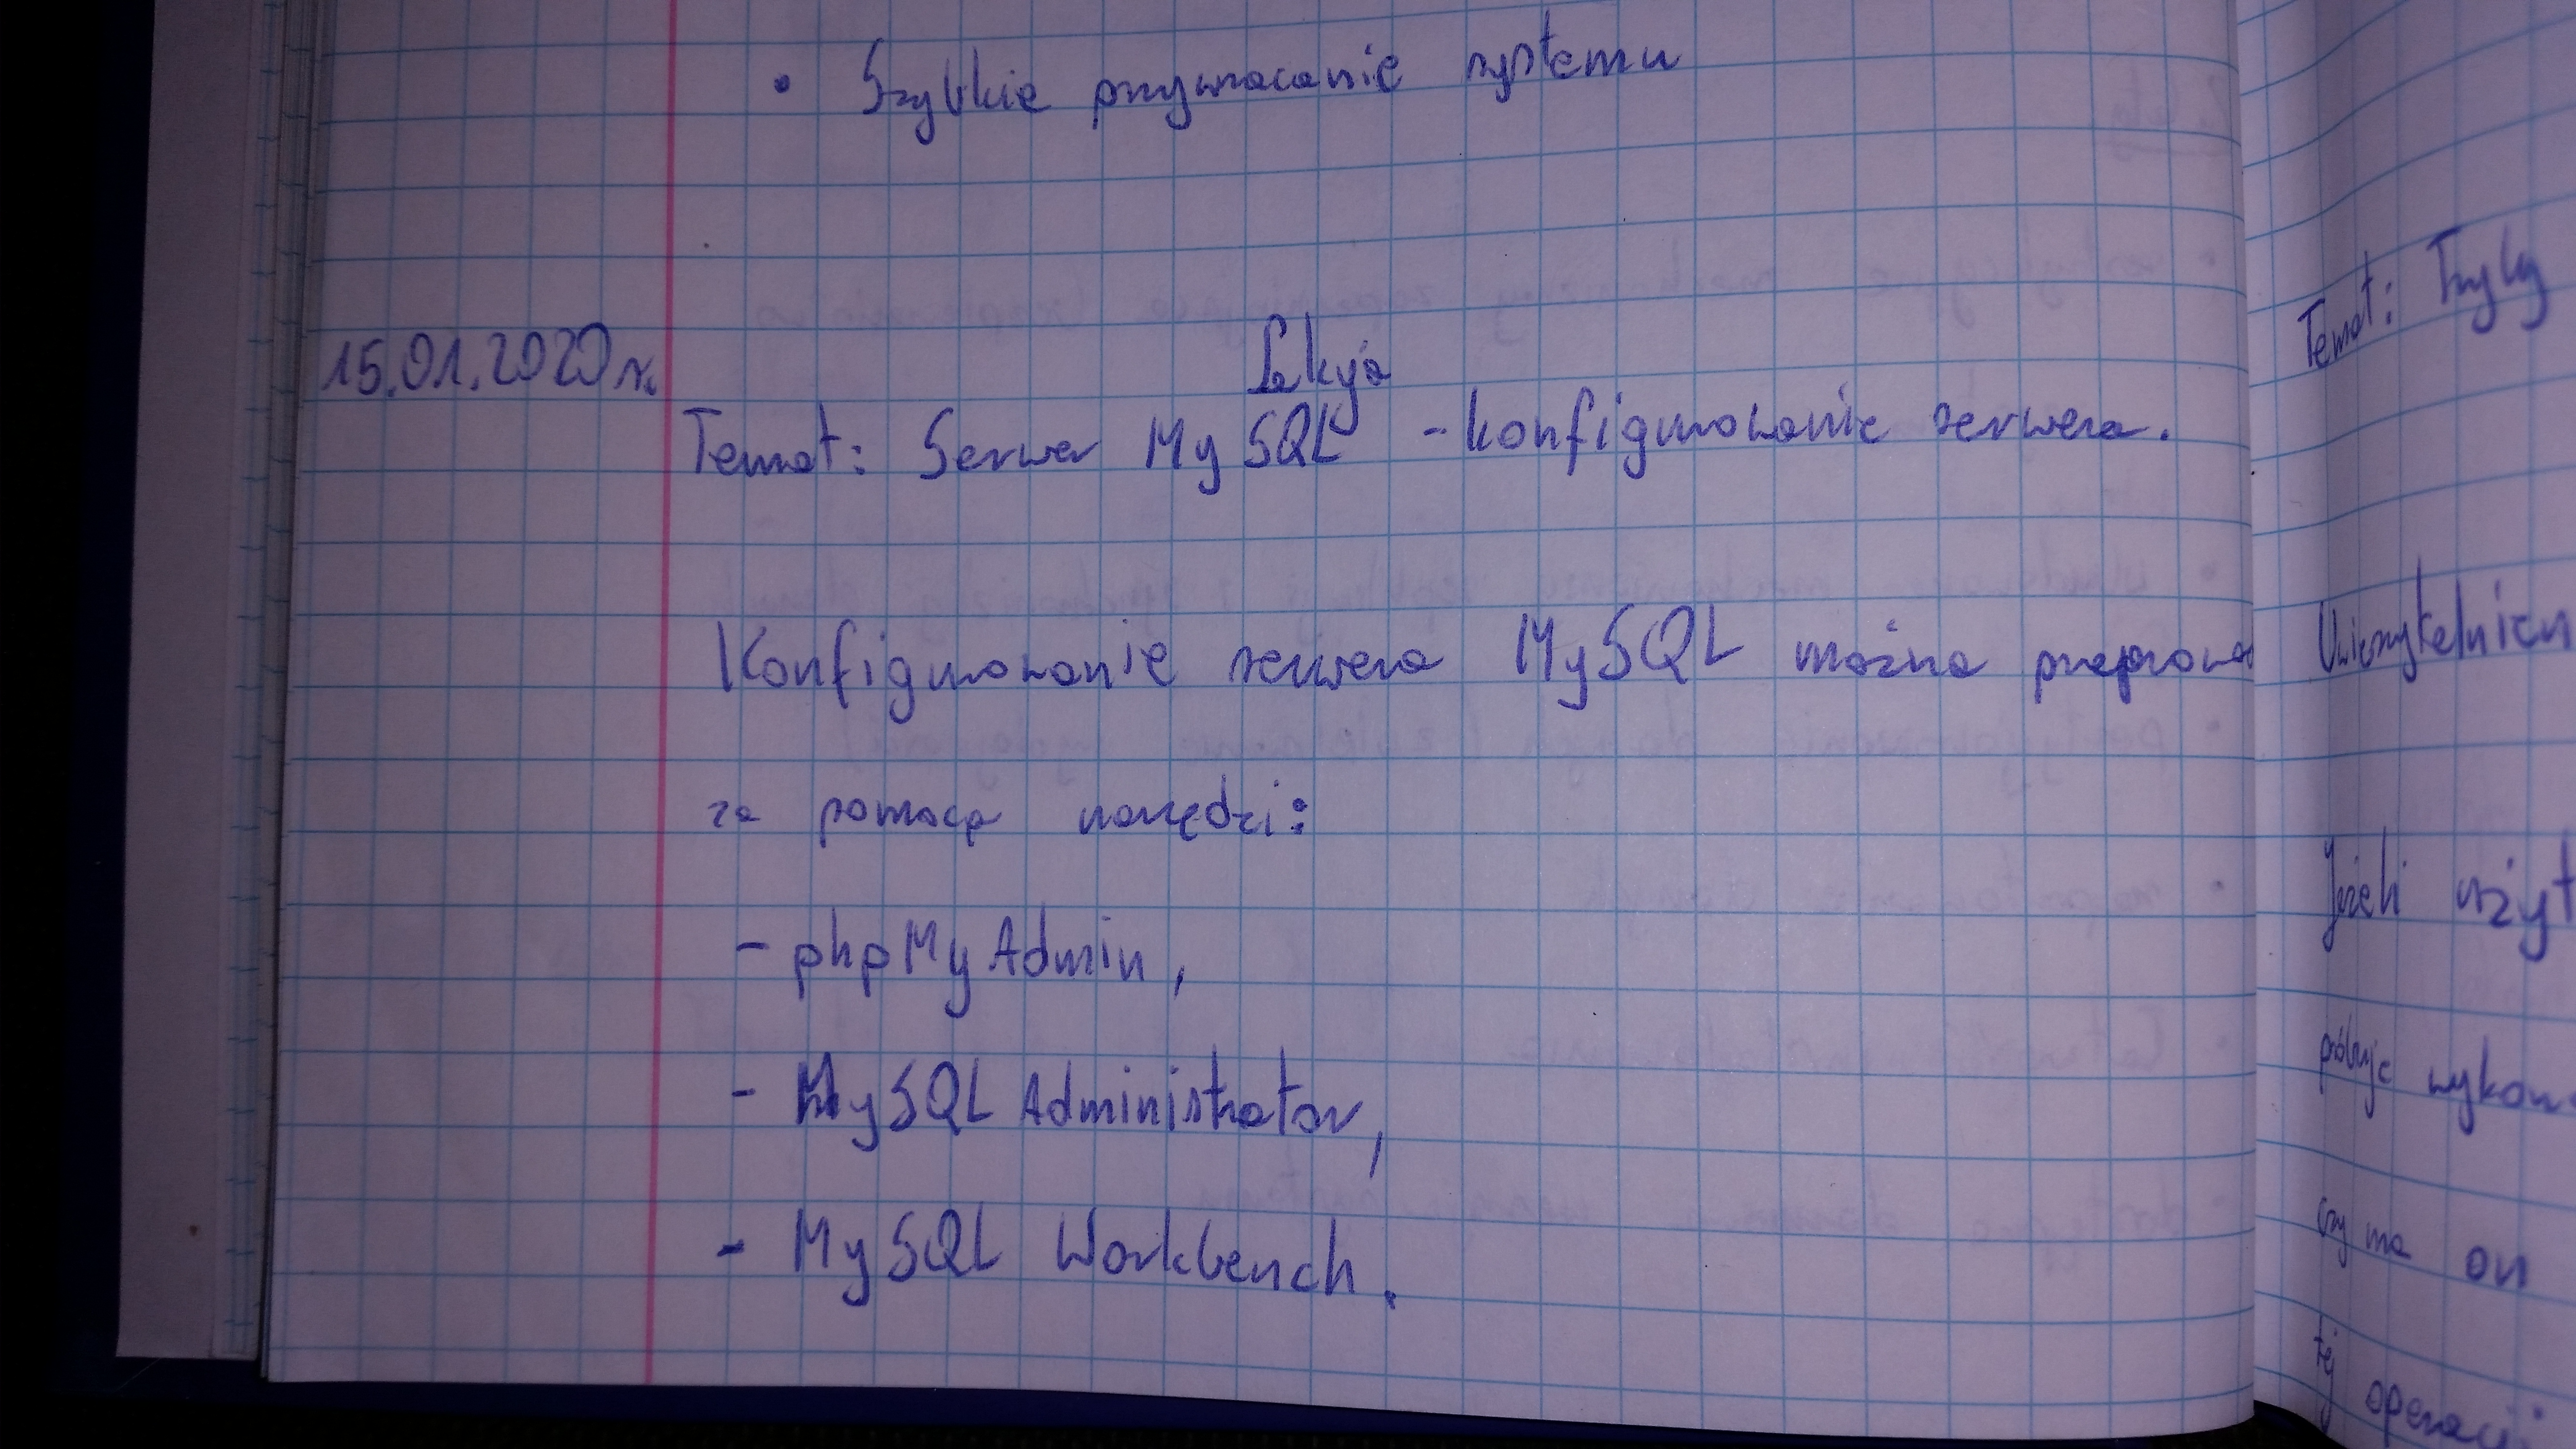 • Szybkie przywracanie systemu
15.01.2020r.
Lekcja
Temat: Serwer MySQL - konfigurowanie serwera.
Konfigurowanie serwera MySQL można przeprowad
za pomocą narzędzi:
- phpMyAdmin,
- MySQL Administrator,
- MySQL Workbench.
Temat: Tryby
Uwierzytelnien
Jeżeli użyt
próbuje wykon
czy ma on
tej operacji